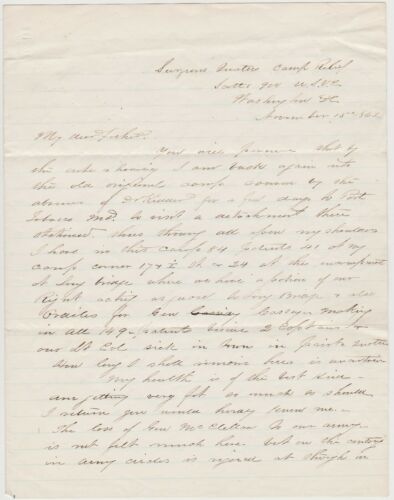 Surgeons Quarters Camp Relief
Washington DC
November 15th 1862
My dear father
You will perceive that by
the above heading I am back again into
the old regimental camp by the
absence of Dr for a few days to Port
Tobacco Md. to visit a detachment there
stationed. thus throwing all upon my shoulders
I have in this camp 84 patients 41 at my
camp corner 17th & I St. & 24 at the encampment
at Long bridge where we have a portion of our
Right acting as guard to Long Bridge & also
for Gen Casey making
in all 149 patients beside 2 Captains &
our Lt Col sick in town in private quarters
How long I shall remain here is uncertain
My health is of the best kind
am getting very fat so much so should
I return you would hardly know me.
The loss of Gen McClellan to our army
is not felt much here but on the contrary
in army circles is rejoiced at though in